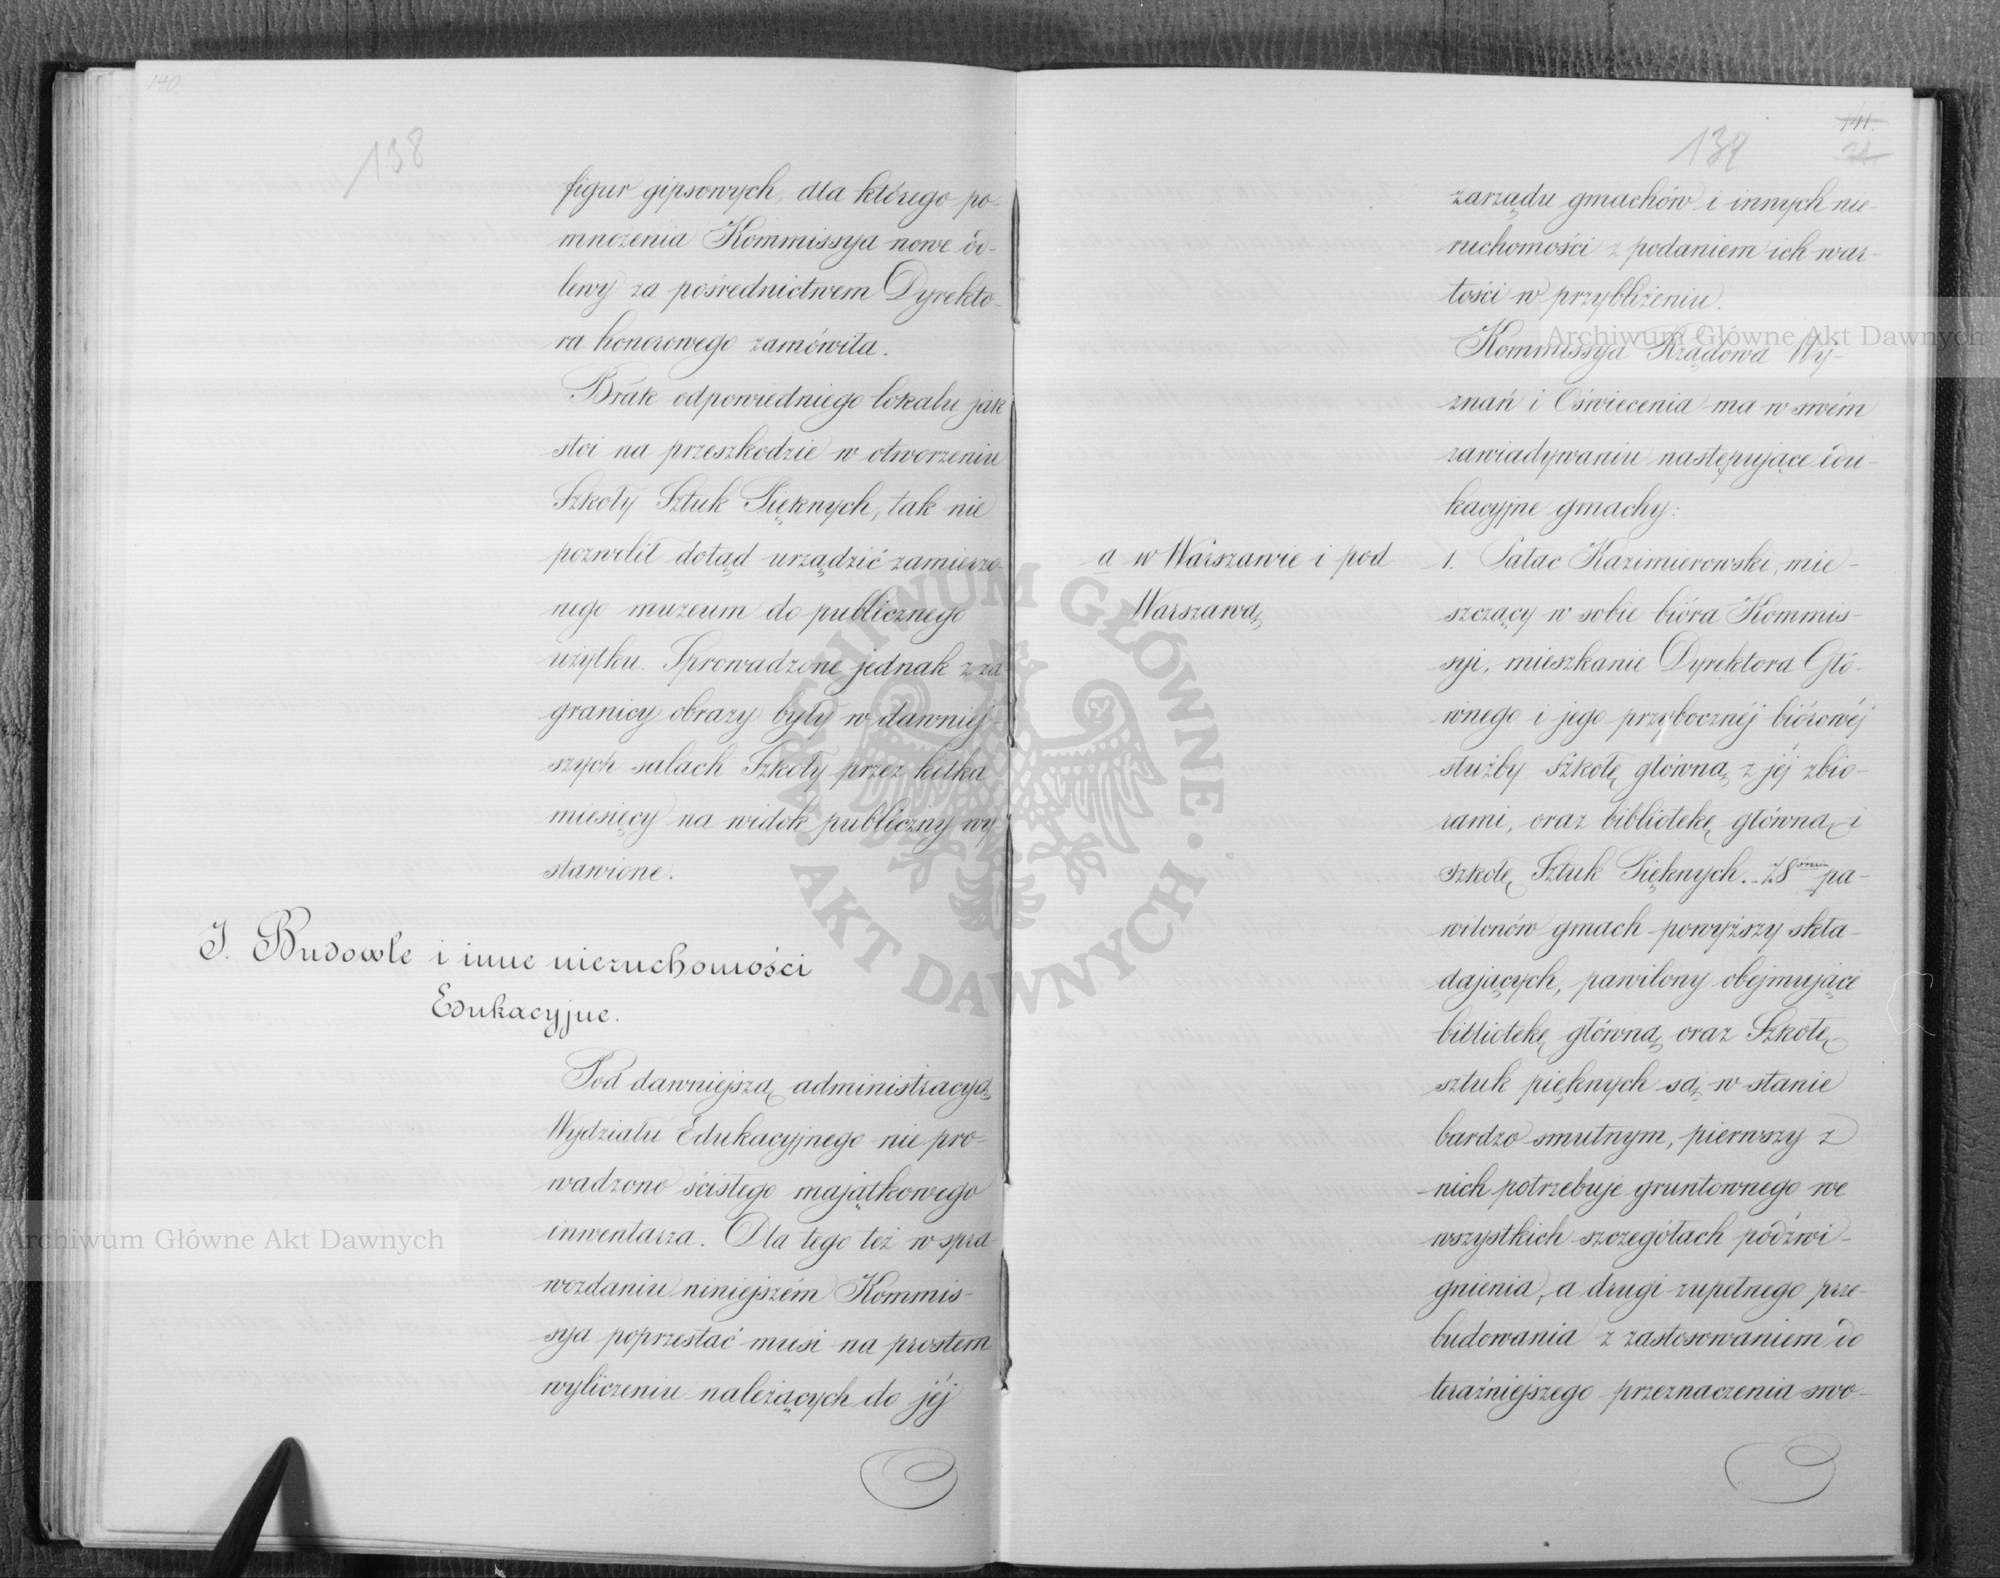 140.
138
figur gipsowych, dla którego po-
mnożenia Kommissya nowe od-
lewy za pośrednictwem Dyrekto-
ra honorowego zamówiła.
Brak odpowiedniego lokalu jak
stoi na przeszkodzie w otworzeniu
Szkoły Sztuk Pięknych, tak nie
pozwolił dotąd urządzić zamierzo-
nego muzeum do publicznego
użytku. Sprowadzone jednak z za-
granicy obrazy były w dawniej-
szych salach Szkoły przez kilka
miesięcy na widok publiczny wy-
stawione.
J. Budowle i inne nieruchomości
Edukacyjne.
Pod dawniejszą administracyą
Wydziału Edukacyjnego nie pro-
wadzono ścisłego majątkowego
inwentarza. Dla tego też w spra-
wozdaniu niniejszém Kommis-
sya poprzestać musi na prostem
wyliczeniu należących do jéj
141.
zarządu gmachów i innych nie-
ruchomości z podaniem ich war-
tości w przybliżeniu.
Kommissya Rządowa Wy-
znań i Oświecenia ma w swém
zawiadywaniu następujące edu-
kacyjne gmachy:
a w Warszawie i pod
Warszawą
1. Pałac Kazimierowski, mie-
szczący w sobie bióra Kommis-
syi, mieszkanie Dyrektora Głó-
wnego i jego przybocznéj biórowéj
służby, Szkołę główną z jéj zbio-
rami, oraz bibliotekę główną i
szkołę Sztuk Pięknych. Z 8śmiu pa-
wilonów gmach powyższy skła-
dających, pawilony obejmujące
bibliotekę główną oraz Szkołę
sztuk pięknych są w stanie
bardzo smutnym, pierwszy z
nich potrzebuje gruntownego we
wszystkich szczegółach podźwi-
gnienia, a drugi zupełnego prze-
budowania z zastosowaniem do
teraźniejszego przeznaczenia swo-
Archiwum Główne Akt Dawnych
Archiwum Główne Akt Dawnych
ARCHIWUM GŁÓWNE · AKT DAWNYCH ·